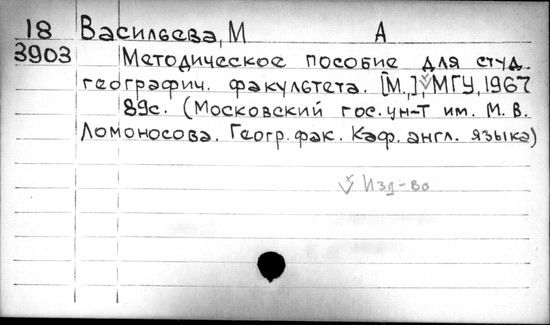 18 Васильева, М А
3903 Методическое пособие для студ.
географич. факультета. [М.,] ѷ МГУ, 1967
89с. (Московский гос. ун-т им. М. В.
Ломоносова. Геогр. фак. Каф. англ. языка)
ѷ Изд-во